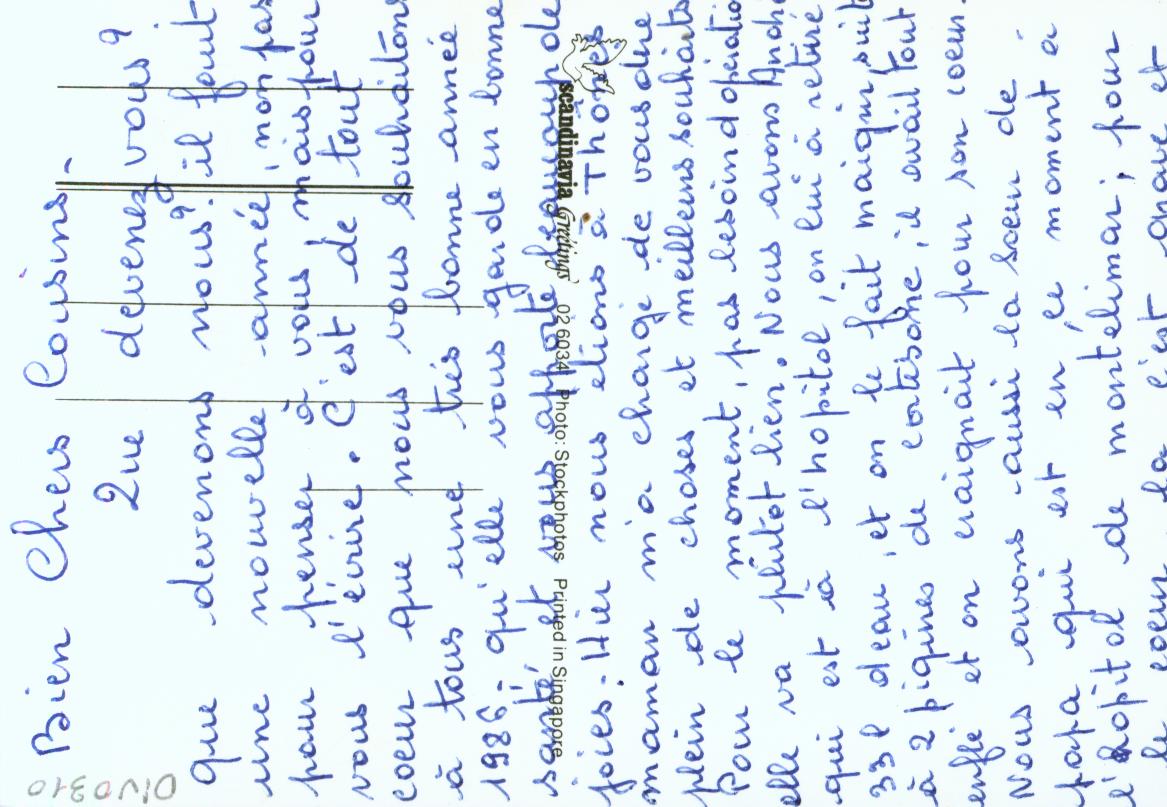 Bien Chers Cousins-
Que devenez vous ?
que devenons nous ? il faut
une nouvelle année, non pas
pour penser à vous mais pour
vous l'écrire. C'est de tout
coeur que nous vous souhaitons
à tous une très bonne année
1986 - qu'elle vous garde en bonne
santé, et vous apporte beaucoup de
joies. Hier nous étions à Thônes
maman m'a chargé de vous dire
plein de choses et meilleurs souhaits
Pour le moment, pas besoin d'opération
elle va plutôt bien. Nous avons André
qui est à l'hopital, on lui à retiré
33 l deau, et on le fait maigrir suite
à 2 piqures de cortisone, il avait tout
enflé et on craignait pour son coeur.
Nous avons aussi la soeur de
papa qui est en ce moment à
l'hopital de montélimar, pour
le coeur, là c'est grave et
scandinavia Greetings 02 6034 Photo: Stockphotos Printed in Singapore
DIV0310